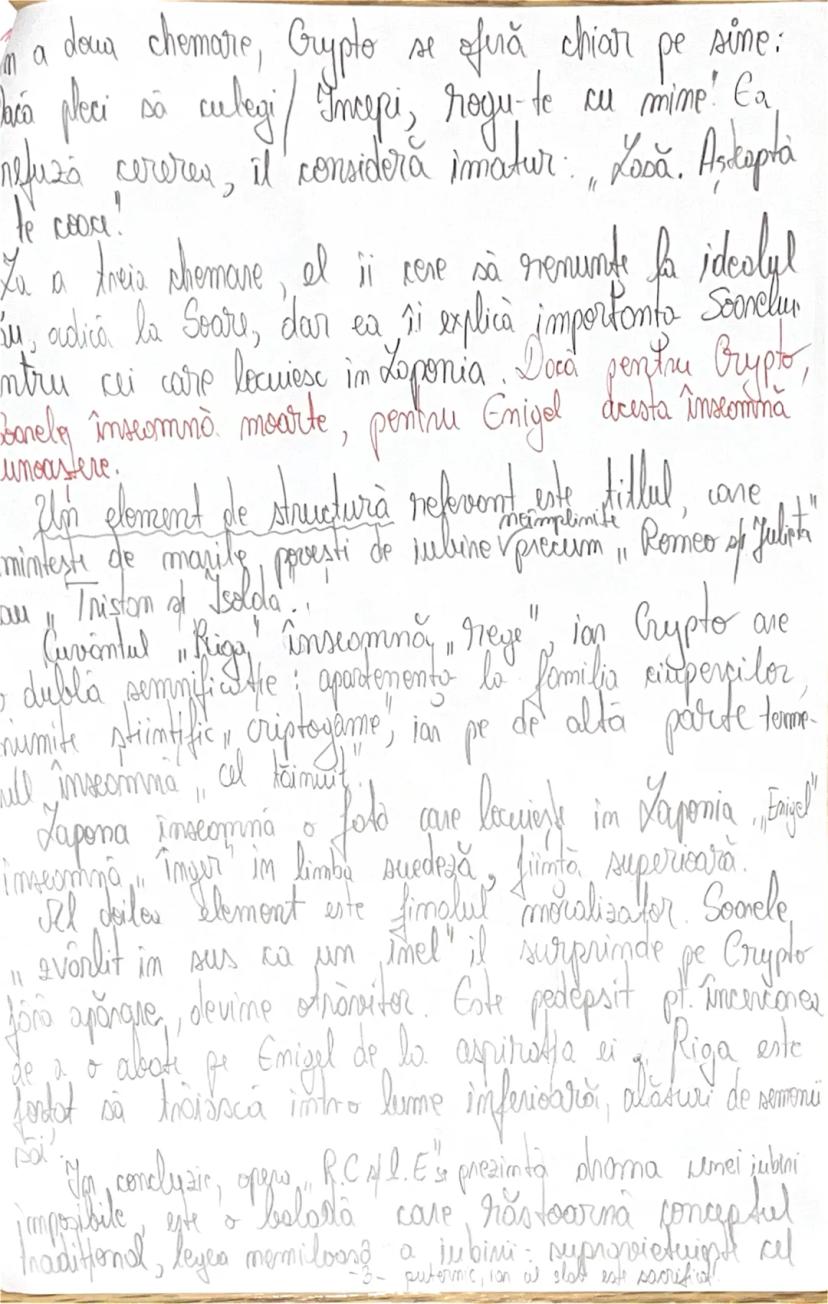 n a doua chemare, Crypto se oferă chiar pe sine:
acă pleci să culegi/ Începi, rogu-te cu mine! Ea
refuză cererea, îl consideră imatur: „Lasă. Așteaptă
te coaci!
La a treia chemare, el îi cere să renunțe la idealul
ău, adică la Soare, dar ea îi explică importanța Soarelui
ntru cei care locuiesc în Laponia. Dacă pentru Crypto,
oarele înseamnă moarte, pentru Enigel acesta înseamnă
unoaștere.
Un element de structură relevant este titlul, care
mintește de marile povești de iubire neîmplinite precum „Romeo și Julieta"
au „Tristan și Isolda.
Cuvântul „Riga" înseamnă „rege", iar Crypto are
o dublă semnificație: apartenența la familia ciupercilor,
numite științific „criptogame", iar pe de altă parte terme-
nul înseamnă „cel tăinuit".
Lapona înseamnă o fată care locuiește în Laponia. „Enigel"
înseamnă „înger" în limba suedeză, ființă superioară.
Al doilea element este finalul moralizator. Soarele,
„zvârlit în sus ca un inel" îl surprinde pe Crypto
fără apărare, devine otrăvitor. Este pedepsit pt. încercarea
de a o abate pe Enigel de la aspirația ei. Riga este
forțat să trăiască într-o lume inferioară, alături de semenii
săi.
În concluzie, opera „R.C și l.E" prezintă drama unei iubiri
imposibile, este o baladă care răstoarnă conceptul
tradițional, legea nemiloasă a iubirii: supraviețuiește cel
-3- puternic, iar cel slab este sacrificat.